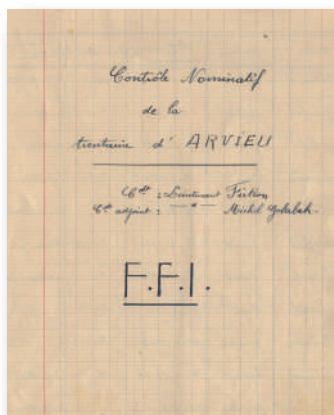 Contrôle Nominatif
de la
trentaine d'ARVIEU
Cdt : Lieutenant
Ct adjoint : — " — Michel
F.F.I.